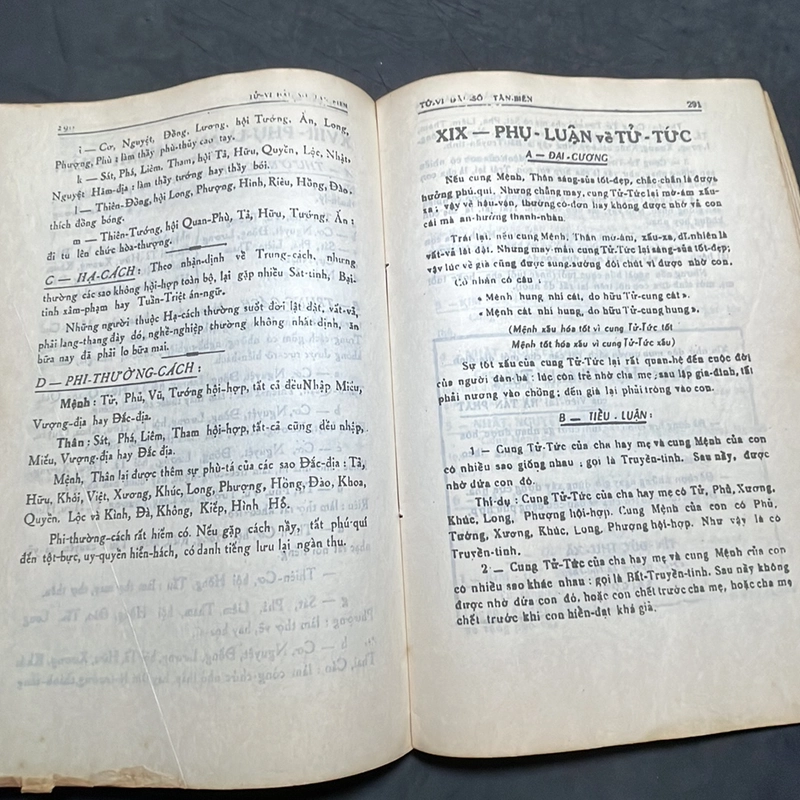 290
TỬ-VI ĐẨU SỐ TÂN BIÊN
i — Cơ, Nguyệt, Đồng, Lương, hội Tướng, Ấn, Long,
Phượng, Phù : làm thầy phù-thủy cao tay.
k — Sát, Phá, Liêm, Tham, hội Tả, Hữu, Quyền, Lộc, Nhật,
Nguyệt Hãm-địa : làm thầy tướng hay thầy bói.
l — Thiên-Đồng, hội Long, Phượng, Hình, Riêu, Hồng, Đào,
thích đồng bóng.
m — Thiên-Tướng, hội Quan-Phù, Tả, Hữu, Tướng, Ấn :
đi tu lên chức hòa-thượng.
C — HẠ-CÁCH : Theo nhận-định về Trung-cách, nhưng
thường các sao không hội-hợp toàn bộ, lại gặp nhiều Sát-tinh, Bại-
tinh xâm-phạm hay Tuần-Triệt án-ngữ.
Những người thuộc Hạ-cách thường suốt đời lật đật, vất-vả,
phải lang-thang đây đó, nghề-nghiệp thường không nhất-định, ăn
bữa nay đã phải lo bữa mai.
D — PHI-THƯỜNG-CÁCH :
Mệnh : Tử, Phủ, Vũ, Tướng hội-hợp, tất cả đều Nhập Miếu,
Vượng-địa hay Đắc-địa.
Thân : Sát, Phá, Liêm, Tham hội-hợp, tất-cả cũng đều nhập,
Miếu, Vượng-địa hay Đắc địa.
Mệnh, Thân lại được thêm sự phù-tá của các sao Đắc-địa : Tả,
Hữu, Khôi, Việt, Xương, Khúc, Long, Phượng, Hồng, Đào, Khoa,
Quyền, Lộc và Kình, Đà, Không, Kiếp, Hình Hổ.
Phi-thường-cách rất hiếm có. Nếu gặp cách nầy, tất phú-quí
đến tột-bực, uy-quyền hiển-hách, có danh tiếng lưu lại ngàn thu.
TỬ-VI ĐẨU SỐ TÂN-BIÊN
291
XIX — PHỤ-LUẬN về TỬ-TỨC
A — ĐẠI-CƯƠNG
Nếu cung Mệnh, Thân sáng-sủa tốt-đẹp, chắc-chắn là được
hưởng phú-quí. Nhưng chẳng may, cung Tử-Tức lại mờ-ám xấu-
xa ; vậy về hậu-vận, thường cô-đơn hay không được nhờ vả con
cái mà an-hưởng thanh-nhàn.
Trái lại, nếu cung Mệnh, Thân mờ-ám, xấu-xa, dĩ-nhiên là
vất-vả lật đật. Nhưng may-mắn cung Tử-Tức lại sáng-sủa tốt-đẹp ;
vậy lúc về già cũng được sung-sướng đôi chút vì được nhờ con.
Cổ nhân có câu :
« Mệnh hung nhi cát, do hữu Tử-cung cát ».
« Mệnh cát nhi hung, do hữu Tử-cung hung ».
(Mệnh xấu hóa tốt vì cung Tử-Tức tốt
Mệnh tốt hóa xấu vì cung Tử-Tức xấu)
Sự tốt xấu của cung Tử-Tức lại rất quan-hệ đến cuộc đời
của người đàn-bà : lúc còn trẻ nhờ cha mẹ ; sau lập gia-đình, tất
phải nương vào chồng ; đến già lại phải trông vào con.
B — TIỂU-LUẬN :
1 — Cung Tử-Tức của cha hay mẹ và cung Mệnh của con
có nhiều sao giống nhau : gọi là Truyền-tinh. Sau nầy, được
nhờ đứa con đó.
Thí-dụ : Cung Tử-Tức của cha hay mẹ có Tử, Phủ, Xương,
Khúc, Long, Phượng hội-hợp. Cung Mệnh của con có Phủ,
Tướng, Xương, Khúc, Long, Phượng hội-hợp. Như vậy là có
Truyền-tinh.
2 — Cung Tử-Tức của cha hay mẹ và cung Mệnh của con
có nhiều sao khác nhau : gọi là Bất-Truyền-tinh. Sau nầy không
được nhờ đứa con đó, hoặc con chết trước cha mẹ, hoặc cha mẹ
chết trước khi con hiển-đạt khá giả.